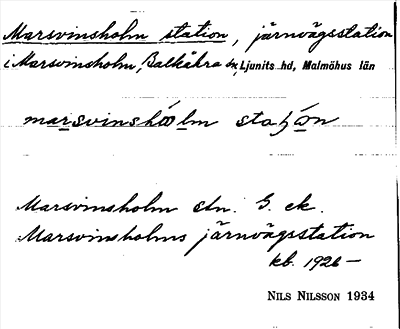 Marsvinsholm station, järnvägsstation
i Marsvinsholm, Balkåkra sn, Ljunits hd, Malmöhus län
marsvinshóólm staþón
Marsvinsholm stn. G. ek.
Marsvinsholms järnvägsstation
kb. 1926—
NILS NILSSON 1934